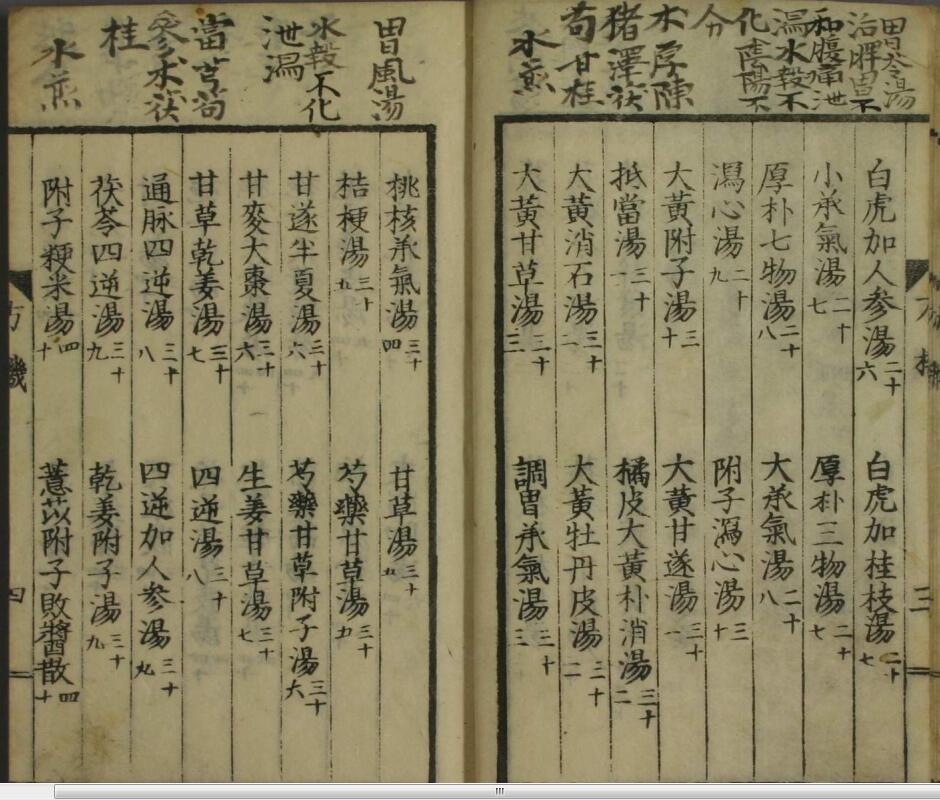 胃苓湯
治脾胃不
和腹痛泄
瀉水穀不
化陰陽不
分
朮厚陳
猪澤茯
芍甘桂
水煎
白虎加人參湯二十六 白虎加桂枝湯二十七
小承氣湯二十七 厚朴三物湯二十七
厚朴七物湯二十八 大承氣湯二十八
瀉心湯二十九 附子瀉心湯三十
大黃附子湯三十 大黃甘遂湯三十一
抵當湯三十一 橘皮大黃朴消湯三十二
大黃消石湯三十二 大黃牡丹皮湯三十二
大黃甘草湯三十三 調胃承氣湯三十三
胃風湯
水穀不化
泄瀉
當芎芍
參朮茯
桂
水煎
桃核承氣湯三十四 甘草湯三十五
桔梗湯三十五 芍藥甘草湯三十五
甘遂半夏湯三十六 芍藥甘草附子湯三十六
甘麥大棗湯三十六 生姜甘草湯三十七
甘草乾姜湯三十七 四逆湯三十八
通脉四逆湯三十八 四逆加人參湯三十九
茯苓四逆湯三十九 乾姜附子湯三十九
附子粳米湯四十 薏苡附子敗醬散四十
方機 四